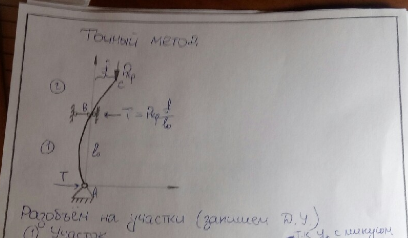 Точный метод
f
P_кр
C
②
B
T = P_кр f/l₀
①
l₀
T
A
Разобъём на участки (запишем Д.У)
① Участок
т.к У₁ с минусом